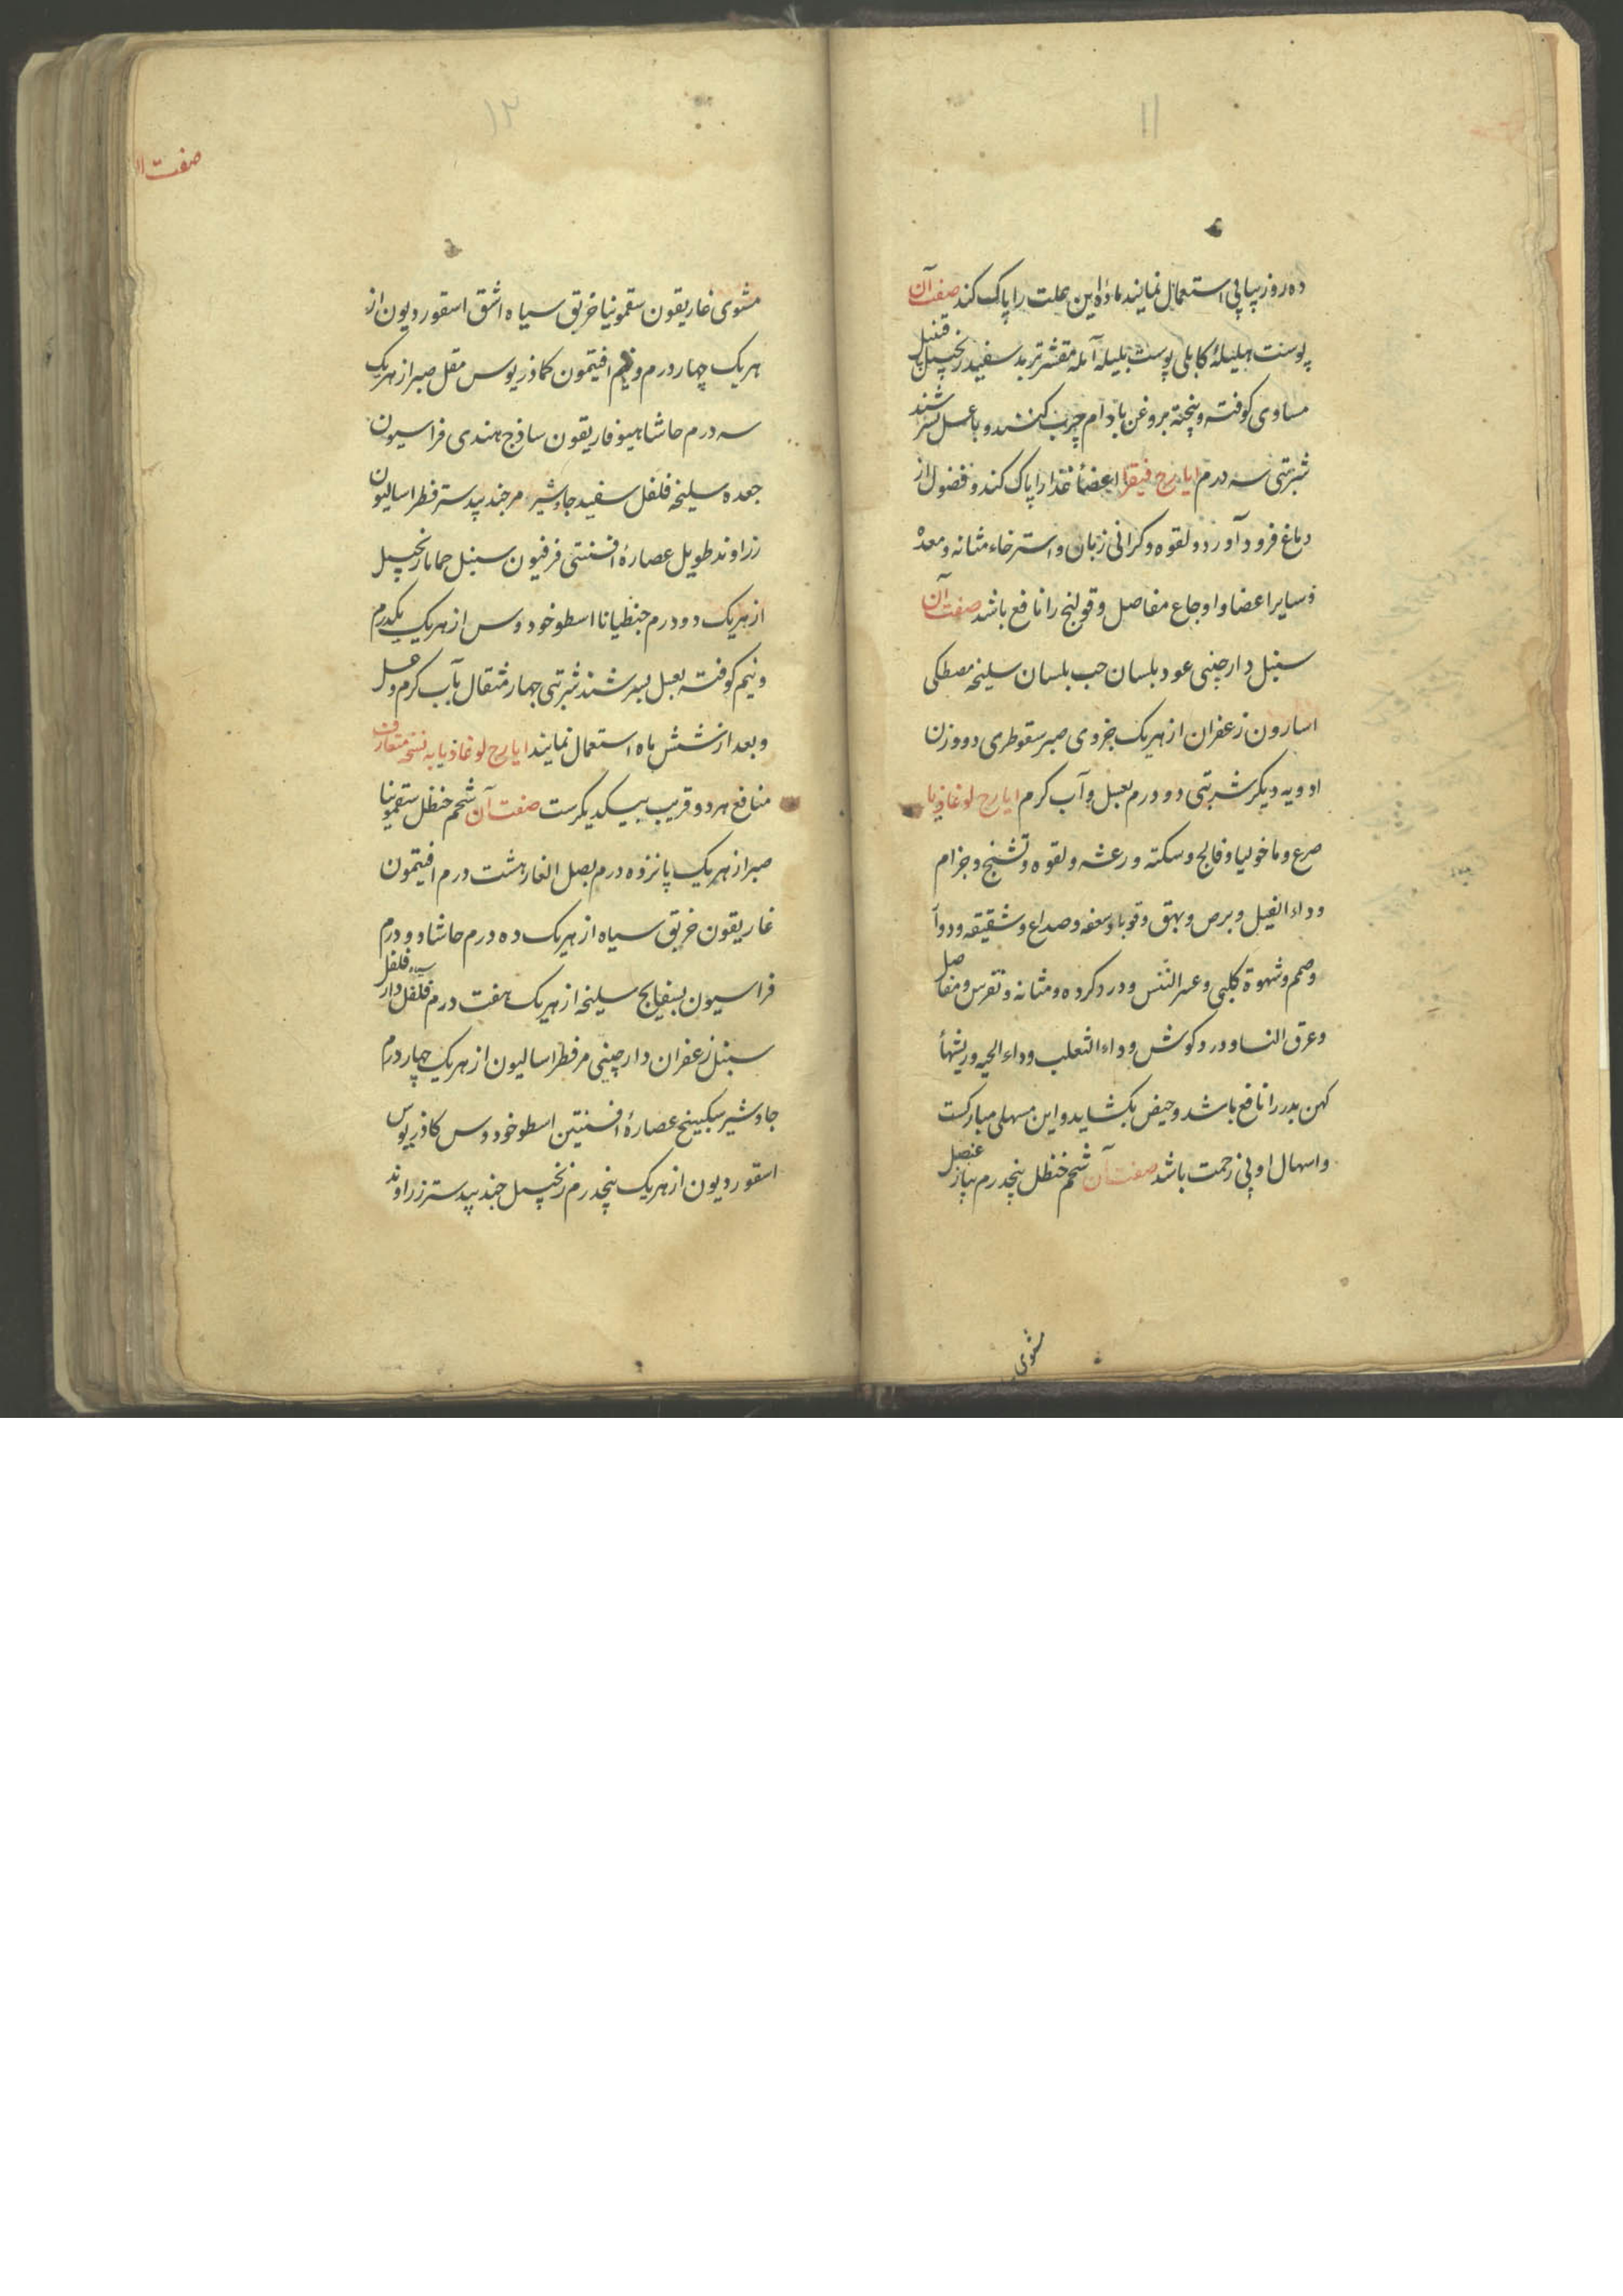 ۱۱
ده روز پیاپی استعمال نمایند ماده این علت را پاک کند صفت آن
پوست هلیلهٔ کابلی پوست بلیله آمله مقشر تربد سفید زنجبیل قنبیل
مساوی کوفته و پخته بروغن بادام چرب کنند و با عسل بسرشند
شربتی سه درم ایارج فیقرا اعضاء غذا را پاک کند و فضول از
دماغ فرود آورد و لقوه و کرانی زبان و استرخاء مثانه و معده
و سایر اعضا و اوجاع مفاصل و قولنج را نافع باشد صفت آن
سنبل دارچینی عود بلسان حب بلسان سلیخه مصطکی
اسارون زعفران از هریک جزوی صبر سقوطری دو وزن
ادویه دیکر شربتی دو درم بعسل و آب کرم ایارج لوغاذیا
صرع و ماخولیا و فالج و سکته و رعشه و لقوه و تشنج و جزام
و داء الفیل و برص و بهق و قوبا و سعفه و صداع و شقیقه و دوآ
و صمم و شهوة کلبی و عسر النفس و درد کرده و مثانه و نقرس و مفاصل
و عرق النسا و درد کوش و داء الثعلب و داء الحیه و ریشهأ
کهن بدر را نافع باشد و حیض بکشاید و این مسهلی مبارکست
و اسهال او بی زحمت باشد صفت آن شحم حنظل پنجدرم پیاز عنصل
مشوی
۱۲
صفت ا
مشوی غاریقون سقمونیا خربق سیاه اشق اسقوردیون از
هریک چهار درم و نیم افتیمون کماذریوس مقل صبر از هریک
سه درم حاشا هیوفاریقون ساذج هندی فراسیون
جعده سلیخه فلفل سفید جاوشیر مر جند بیدستر فطراسالیون
زراوند طویل عصارهٔ افسنتی فرفیون سنبل حماما زنجبیل
از هریک دو درم جنطیانا اسطوخودوس از هریک یکدرم
و نیم کوفته بعسل بسرشند شربتی چهار مثقال بآب کرم و عسل
و بعد از شش ماه استعمال نمایند ایارج لوغاذیا به نسخه متعارف
منافع هردو قریب بیکدیکرست صفت آن شحم حنظل سقمونیا
صبر از هریک پانزده درم بصل الفار هشت درم افتیمون
غاریقون خربق سیاه از هریک ده درم حاشا دو درم
فراسیون بسفایج سلیخه از هریک هفت درم فلفل سیاه دار فلفل
سنبل زعفران دارچینی مر فطراسالیون از هریک چهار درم
جاوشیر سکبینج عصارهٔ افسنتین اسطوخودوس کاذریوس
اسقوردیون از هریک پنجدرم زنجبیل جند بیدستر زراوند